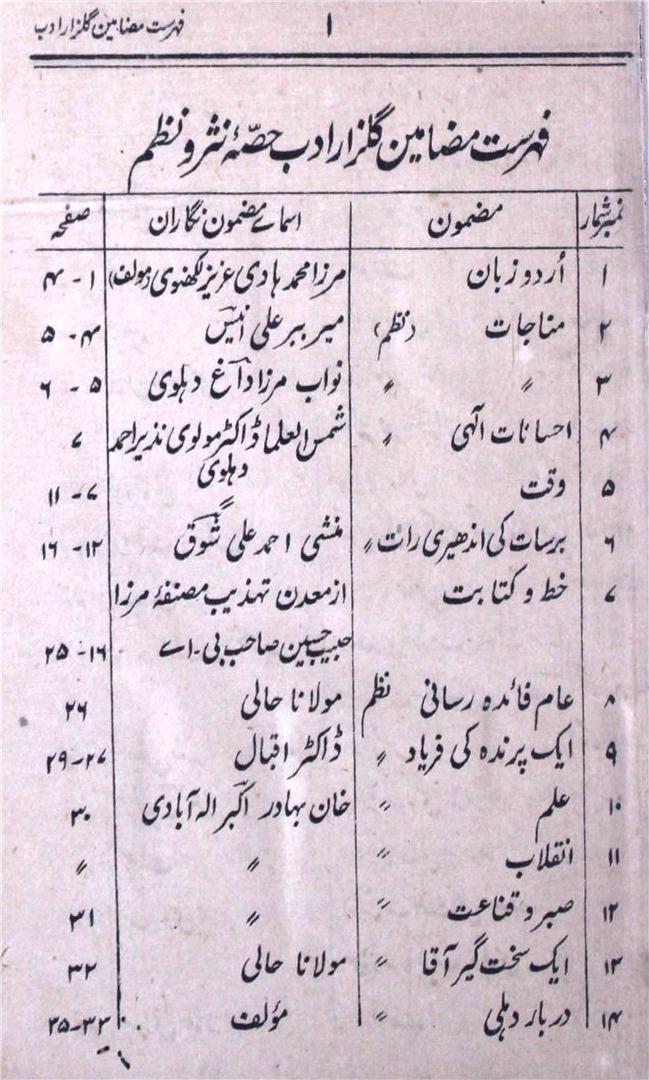 ۱ فہرست مضامین گلزار ادب
فہرست مضامین گلزار ادب حصّۂ نثر و نظم
نمبر شمار مضمون اسمائے مضمون نگاران صفحہ
۱ اُردو زبان مرزا محمد ہادی عزیز لکھنوی (مولف) ۱ - ۴
۲ مناجات (نظم) میر ببر علی انیسؔ ۴ - ۵
۳ 〃 〃 نواب مرزا داغؔ دہلوی ۵ - ۶
۴ احسانات آلہی 〃 شمس العلما ڈاکٹر مولوی نذیر احمد ۷
دہلوی
۵ وقت 〃 ۷ - ۱۱
۶ برسات کی اندھیری رات 〃 منشی احمد علی شوقؔ ۱۲ - ۱۶
۷ خط و کتابت از معدن تہذیب مصنفۂ مرزا
حبیب حسین صاحب بی - اے ۱۶ - ۲۵
۸ عام فائدہ رسانی نظم مولانا حالی ۲۶
۹ ایک پرندہ کی فریاد 〃 ڈاکٹر اقبال ۲۷ - ۲۹
۱۰ علم 〃 خان بہادر اکبرؔ الہ آبادی ۳۰
۱۱ انقلاب 〃 〃 〃
۱۲ صبر و قناعت 〃 〃 ۳۱
۱۳ ایک سخت گیر آقا 〃 مولانا حالی ۳۲
۱۴ دربار دہلی 〃 مؤلف ۳۳ - ۳۵